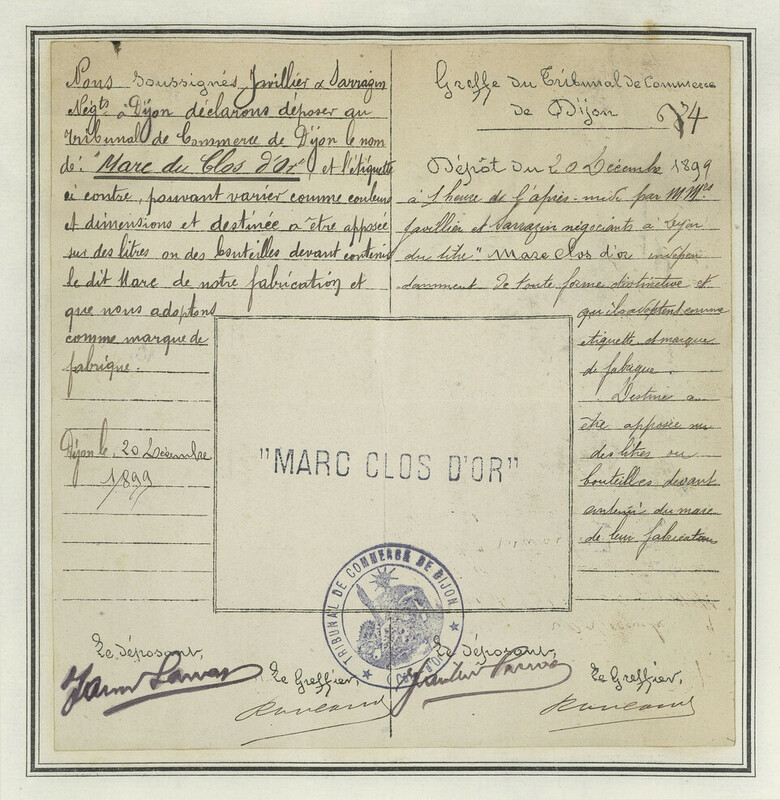 Nous soussignés, Javillier & Sarrazin
Négts à Dijon déclarons déposer au
Tribunal de Commerce de Dijon le nom
de: "Marc du Clos d'Or" et l'étiquette
ci contre, pouvant varier comme couleurs
et dimensions et destinée à être apposée
sur des litres ou des bouteilles devant contenir
le dit Marc de notre fabrication et
que nous adoptons
comme marque de
fabrique.
Dijon le, 20 Décembre
1899
Le déposant,
Le Greffier,
Greffe du Tribunal de Commerce
de Dijon
Dépôt du 20 Décembre 1899
à 1 heure de l'après-midi par MMrs
Javillier et Sarrazin négociants à Dijon
du titre "Marc Clos d'or indépen
damment de toute forme distinctive et
qu'ils adoptent comme
etiquette et marque
de fabrique.
Destiné a
être apposée sur
des litres ou
bouteilles devant
contenir du marc
de leur fabrication
"MARC CLOS D'OR"
TRIBUNAL DE COMMERCE DE DIJON
Le déposant,
Le Greffier,